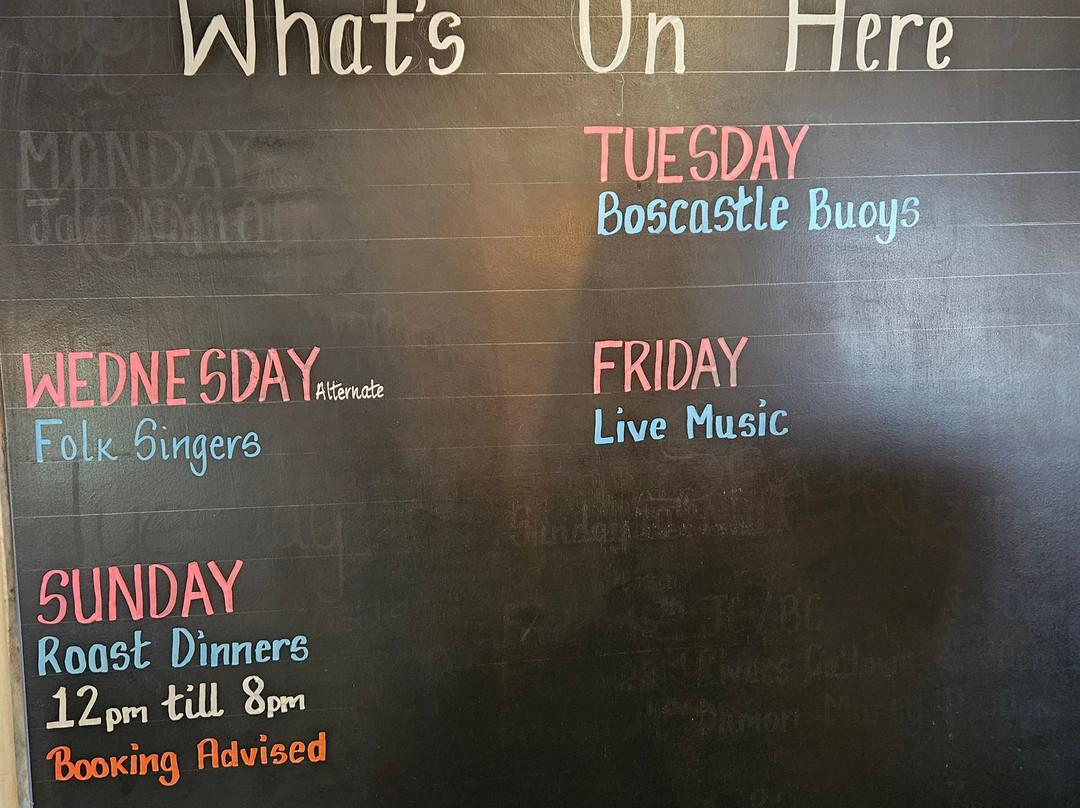 What's On Here
MONDAY
TUESDAY
Boscastle Buoys
WEDNESDAY Alternate
Folk Singers
FRIDAY
Live Music
Tuesday
Sunday
SUNDAY
Roast Dinners
12pm till 8pm
Booking Advised